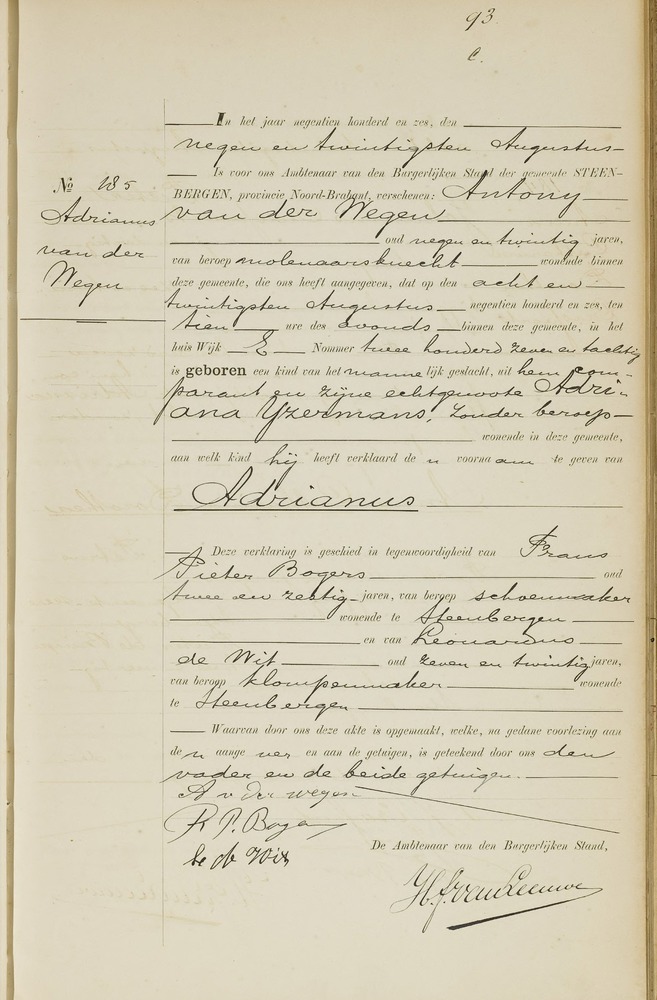 93
c.
In het jaar negentien honderd en zes, den
negen en twintigsten Augustus
Is voor ons Ambtenaar van den Burgerlijken Stand der gemeente STEEN-
BERGEN, provincie Noord-Brabant, verschenen: Antony
van der Wegen
oud negen en twintig jaren,
van beroep molenaarsknecht wonende binnen
deze gemeente, die ons heeft aangegeven, dat op den acht en
twintigsten Augustus negentien honderd en zes, ten
tien ure des avonds binnen deze gemeente, in het
huis Wijk E Nommer twee honderd zeven en tachtig
is geboren een kind van het mannelijk geslacht, uit hem com-
parant en zijne echtgenoote Adri-
ana Yzermans, zonder beroep
wonende in deze gemeente,
aan welk kind hij heeft verklaard de n voornaam te geven van
Adrianus
№ 185
Adrianus
van der
Wegen
Deze verklaring is geschied in tegenwoordigheid van Frans
Pieter Bogers oud
twee en zestig jaren, van beroep schoenmaker
wonende te Steenbergen
en van Leonardus
de Wit oud zeven en twintig jaren,
van beroep klompenmaker wonende
te Steenbergen
Waarvan door ons deze akte is opgemaakt, welke, na gedane voorlezing aan
de n aangever en aan de getuigen, is geteekend door ons den
vader en de beide getuigen.
A v der wegen
P. Boge
de Wit
De Ambtenaar van den Burgerlijken Stand,
H.J. van Leeuwe